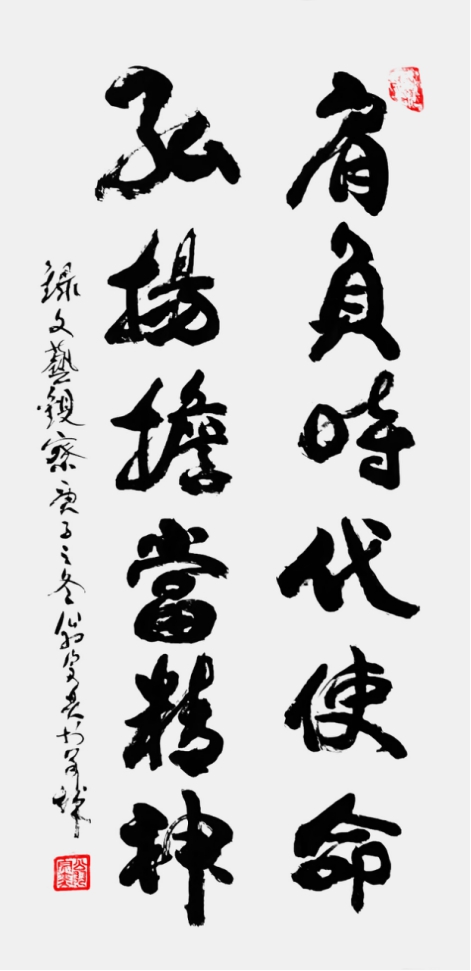 肩負時代使命
弘揚擔當精神
錄文藝觀察庚子之冬